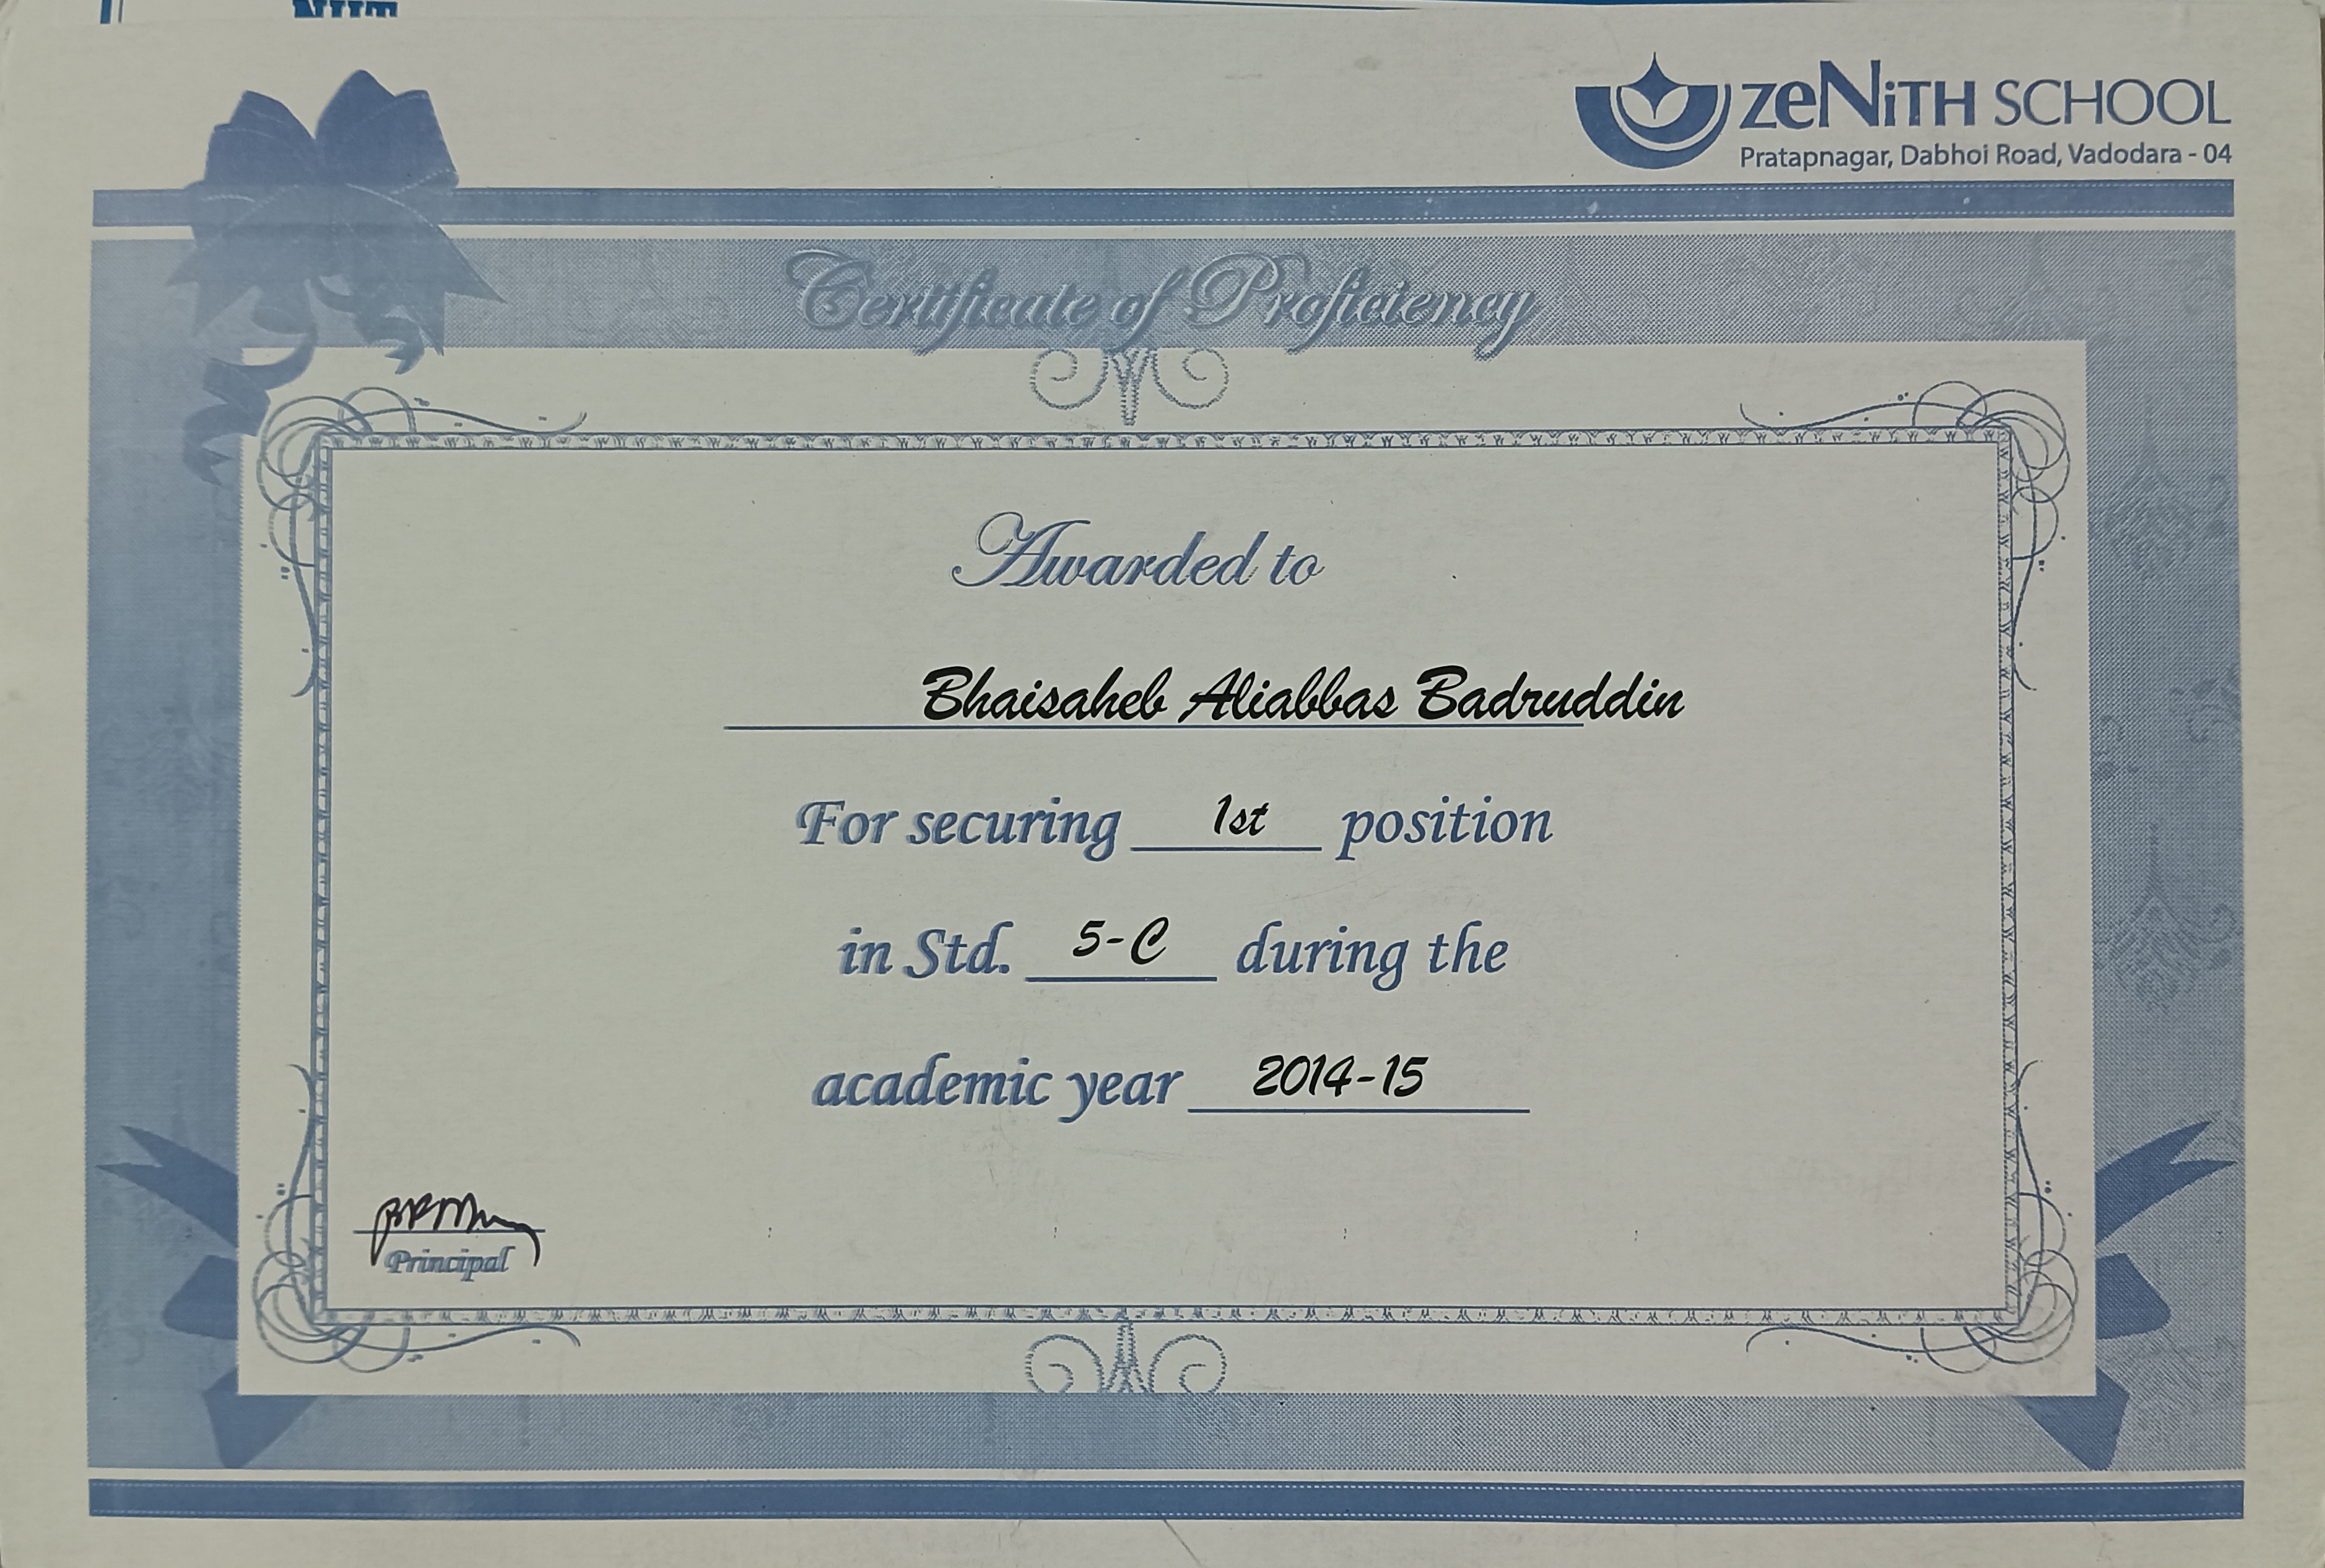 NIIT
zeNiTH SCHOOL
Pratapnagar, Dabhoi Road, Vadodara - 04
Certificate of Proficiency
Awarded to
Bhaisaheb Aliabbas Badruddin
For securing 1st position
in Std. 5-C during the
academic year 2014-15
Principal